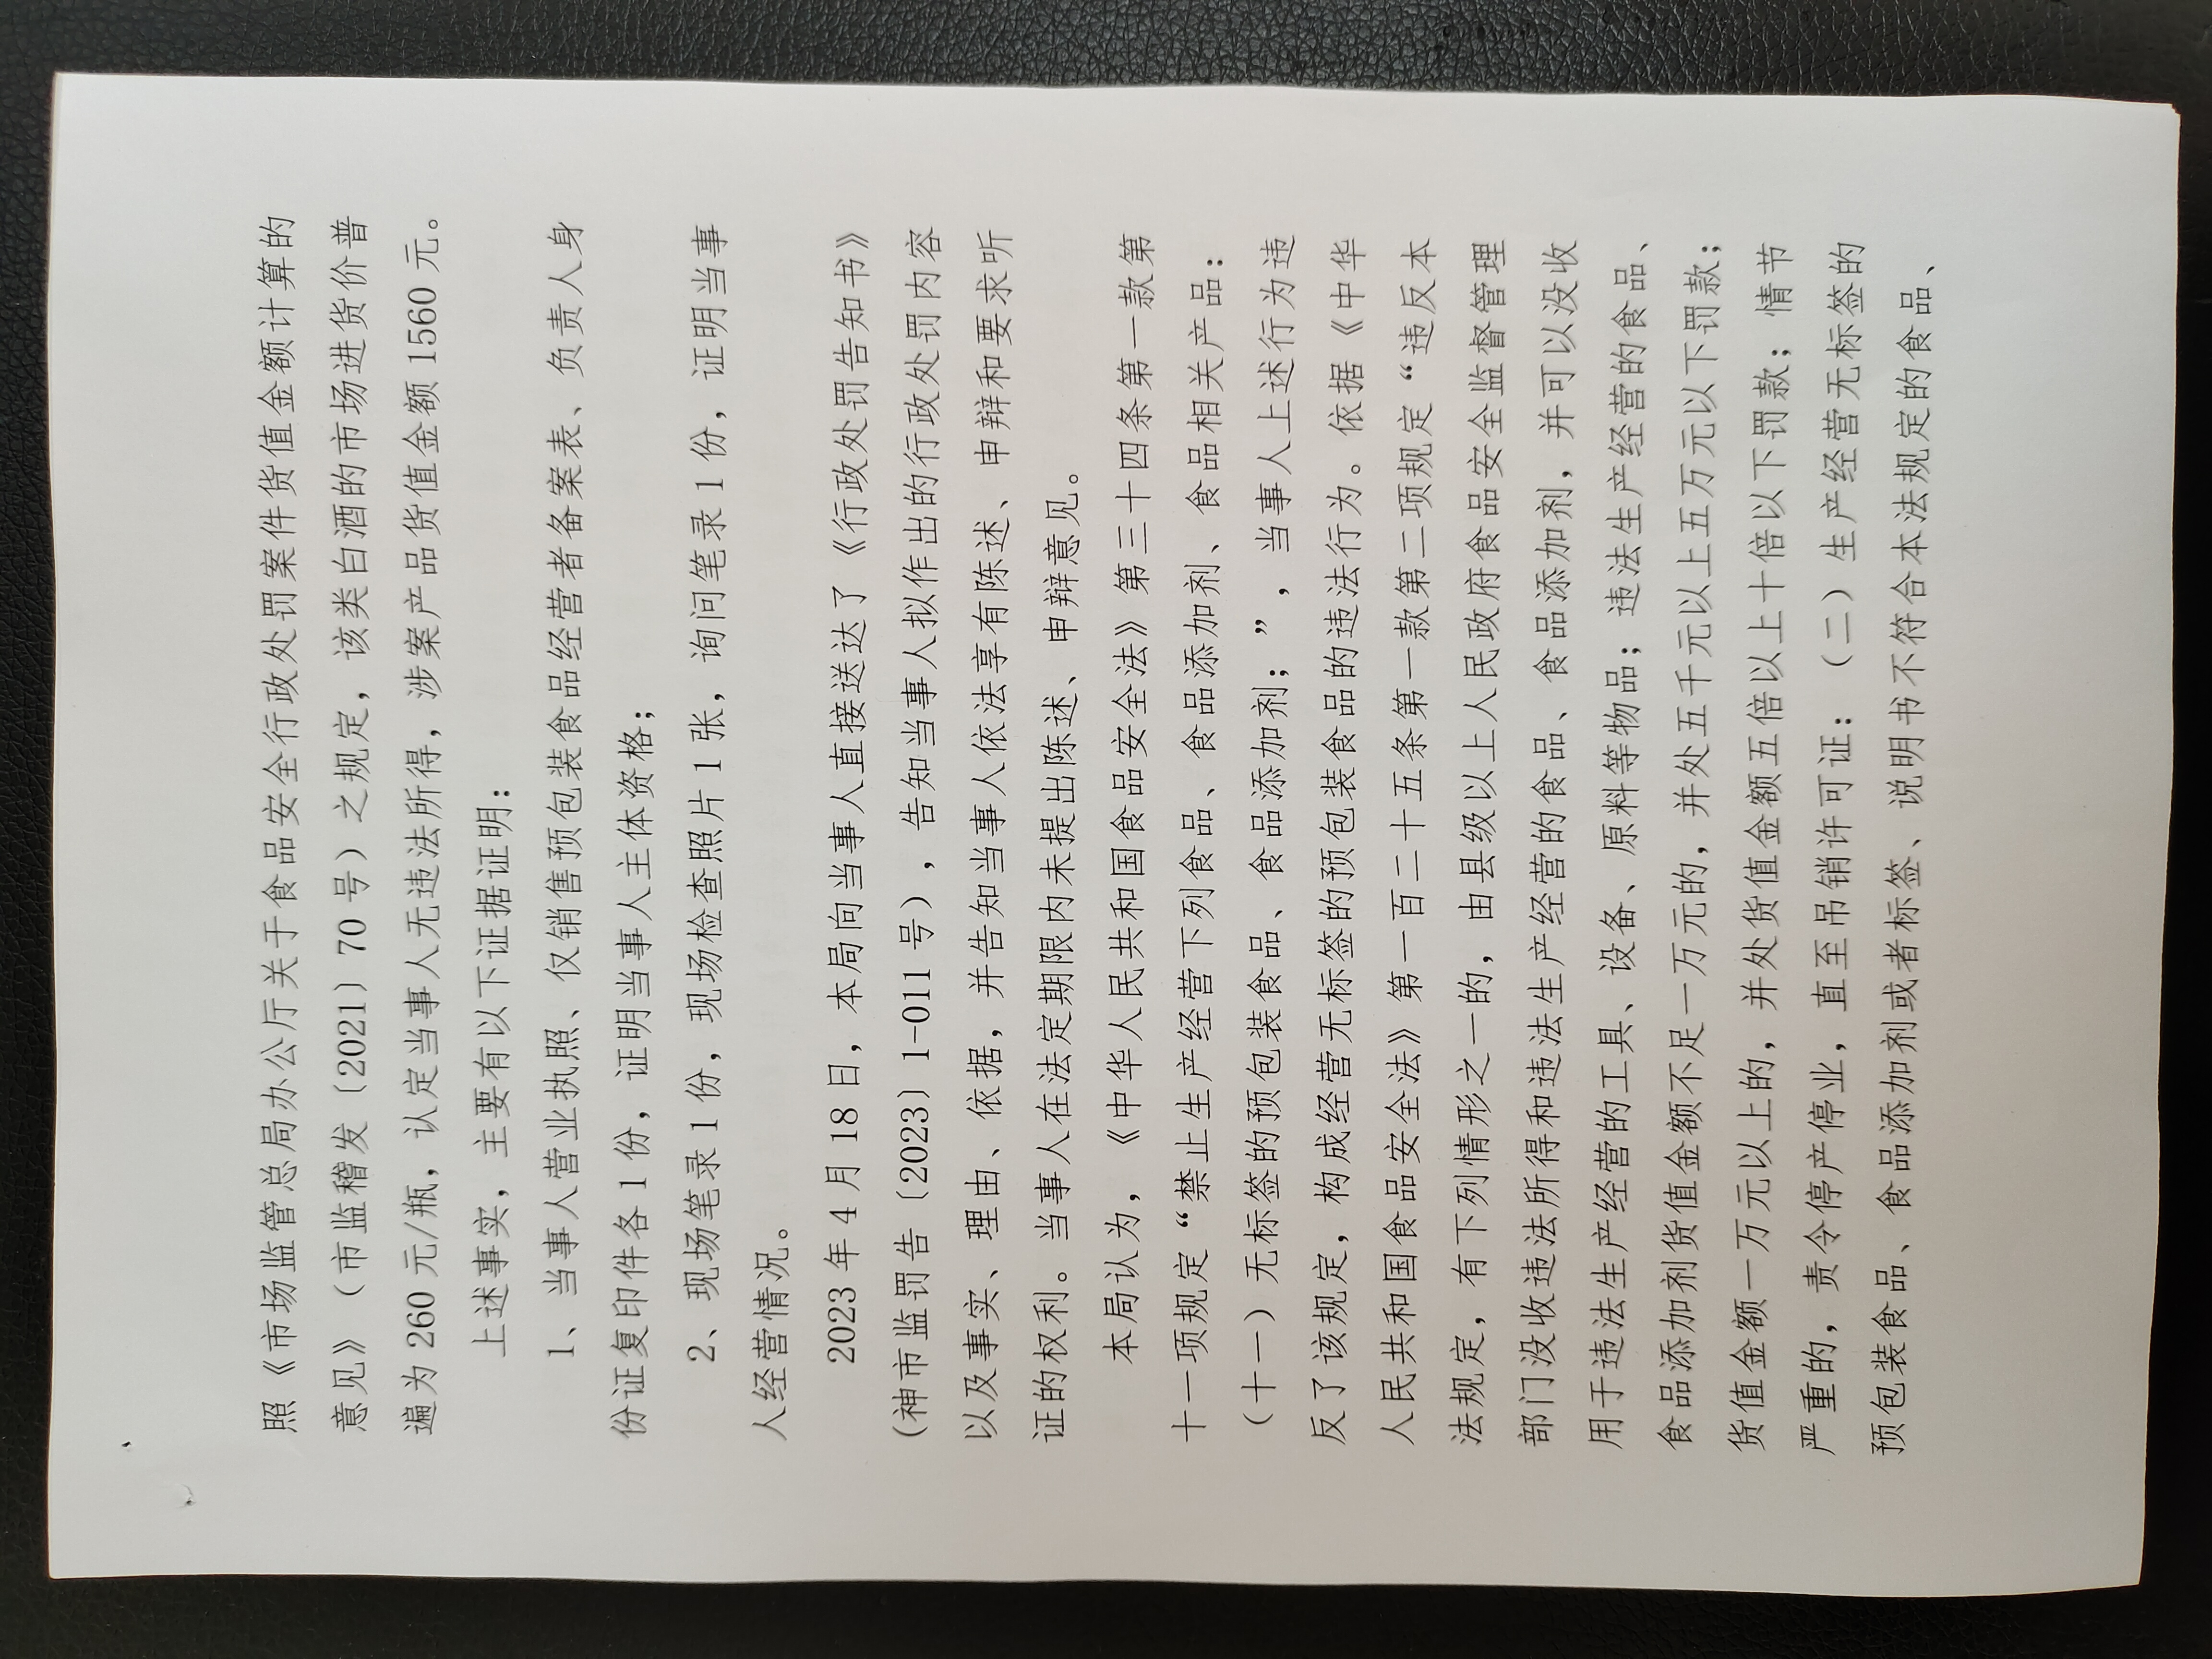 照《市场监管总局办公厅关于食品安全行政处罚案件货值金额计算的
意见》（市监稽发〔2021〕70 号）之规定，该类白酒的市场进货价普
遍为 260 元/瓶，认定当事人无违法所得，涉案产品货值金额 1560 元。
上述事实，主要有以下证据证明：
1、当事人营业执照、仅销售预包装食品经营者备案表、负责人身
份证复印件各 1 份，证明当事人主体资格；
2、现场笔录 1 份，现场检查照片 1 张，询问笔录 1 份，证明当事
人经营情况。
2023 年 4 月 18 日，本局向当事人直接送达了《行政处罚告知书》
(神市监罚告〔2023〕1-011 号），告知当事人拟作出的行政处罚内容
以及事实、理由、依据，并告知当事人依法享有陈述、申辩和要求听
证的权利。当事人在法定期限内未提出陈述、申辩意见。
本局认为，《中华人民共和国食品安全法》第三十四条第一款第
十一项规定“禁止生产经营下列食品、食品添加剂、食品相关产品：
（十一）无标签的预包装食品、食品添加剂；”，当事人上述行为违
反了该规定，构成经营无标签的预包装食品的违法行为。依据《中华
人民共和国食品安全法》第一百二十五条第一款第二项规定“违反本
法规定，有下列情形之一的，由县级以上人民政府食品安全监督管理
部门没收违法所得和违法生产经营的食品、食品添加剂，并可以没收
用于违法生产经营的工具、设备、原料等物品；违法生产经营的食品、
食品添加剂货值金额不足一万元的，并处五千元以上五万元以下罚款；
货值金额一万元以上的，并处货值金额五倍以上十倍以下罚款；情节
严重的，责令停产停业，直至吊销许可证：（二）生产经营无标签的
预包装食品、食品添加剂或者标签、说明书不符合本法规定的食品、